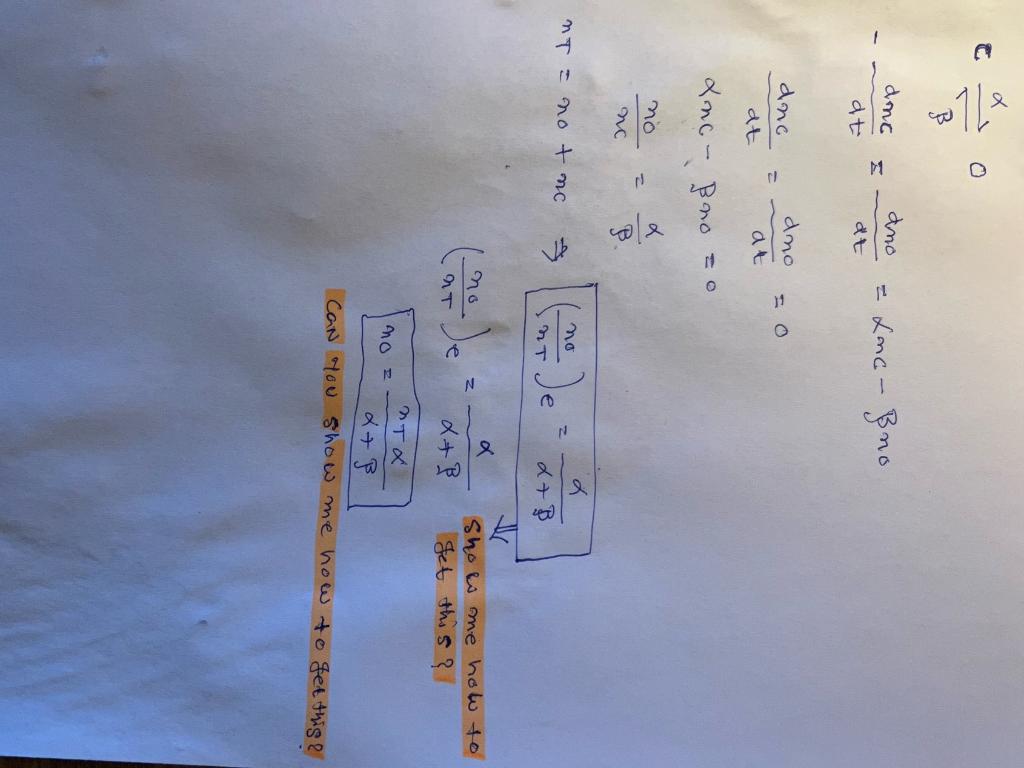 C ⇌ O
α
β
- dnc/dt = dno/dt = αnc - βno
dnc/dt = dno/dt = 0
αnc - βno = 0
no/nc = α/β
nT = no + nc ⇒ (no/nT)e = α/α+β
Show me how to
get this?
(no/nT)e = α/α+β
no = nTα/α+β
Can you show me how to get this?